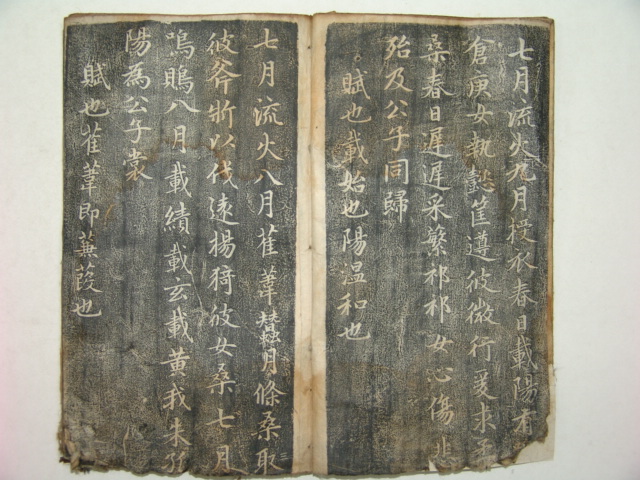 七月流火九月授衣春日載陽有
倉庚女執懿筐遵彼微行爰求柔
桑春日遲遲采蘩祁祁女心傷悲
殆及公子同歸
賦也載始也陽温和也
七月流火八月萑葦蠶月條桑取
三
彼斧斨以伐遠揚猗彼女桑七月
鳴鵙八月載績載玄載黃我朱孔
陽為公子裳
賦也萑葦即蒹葭也